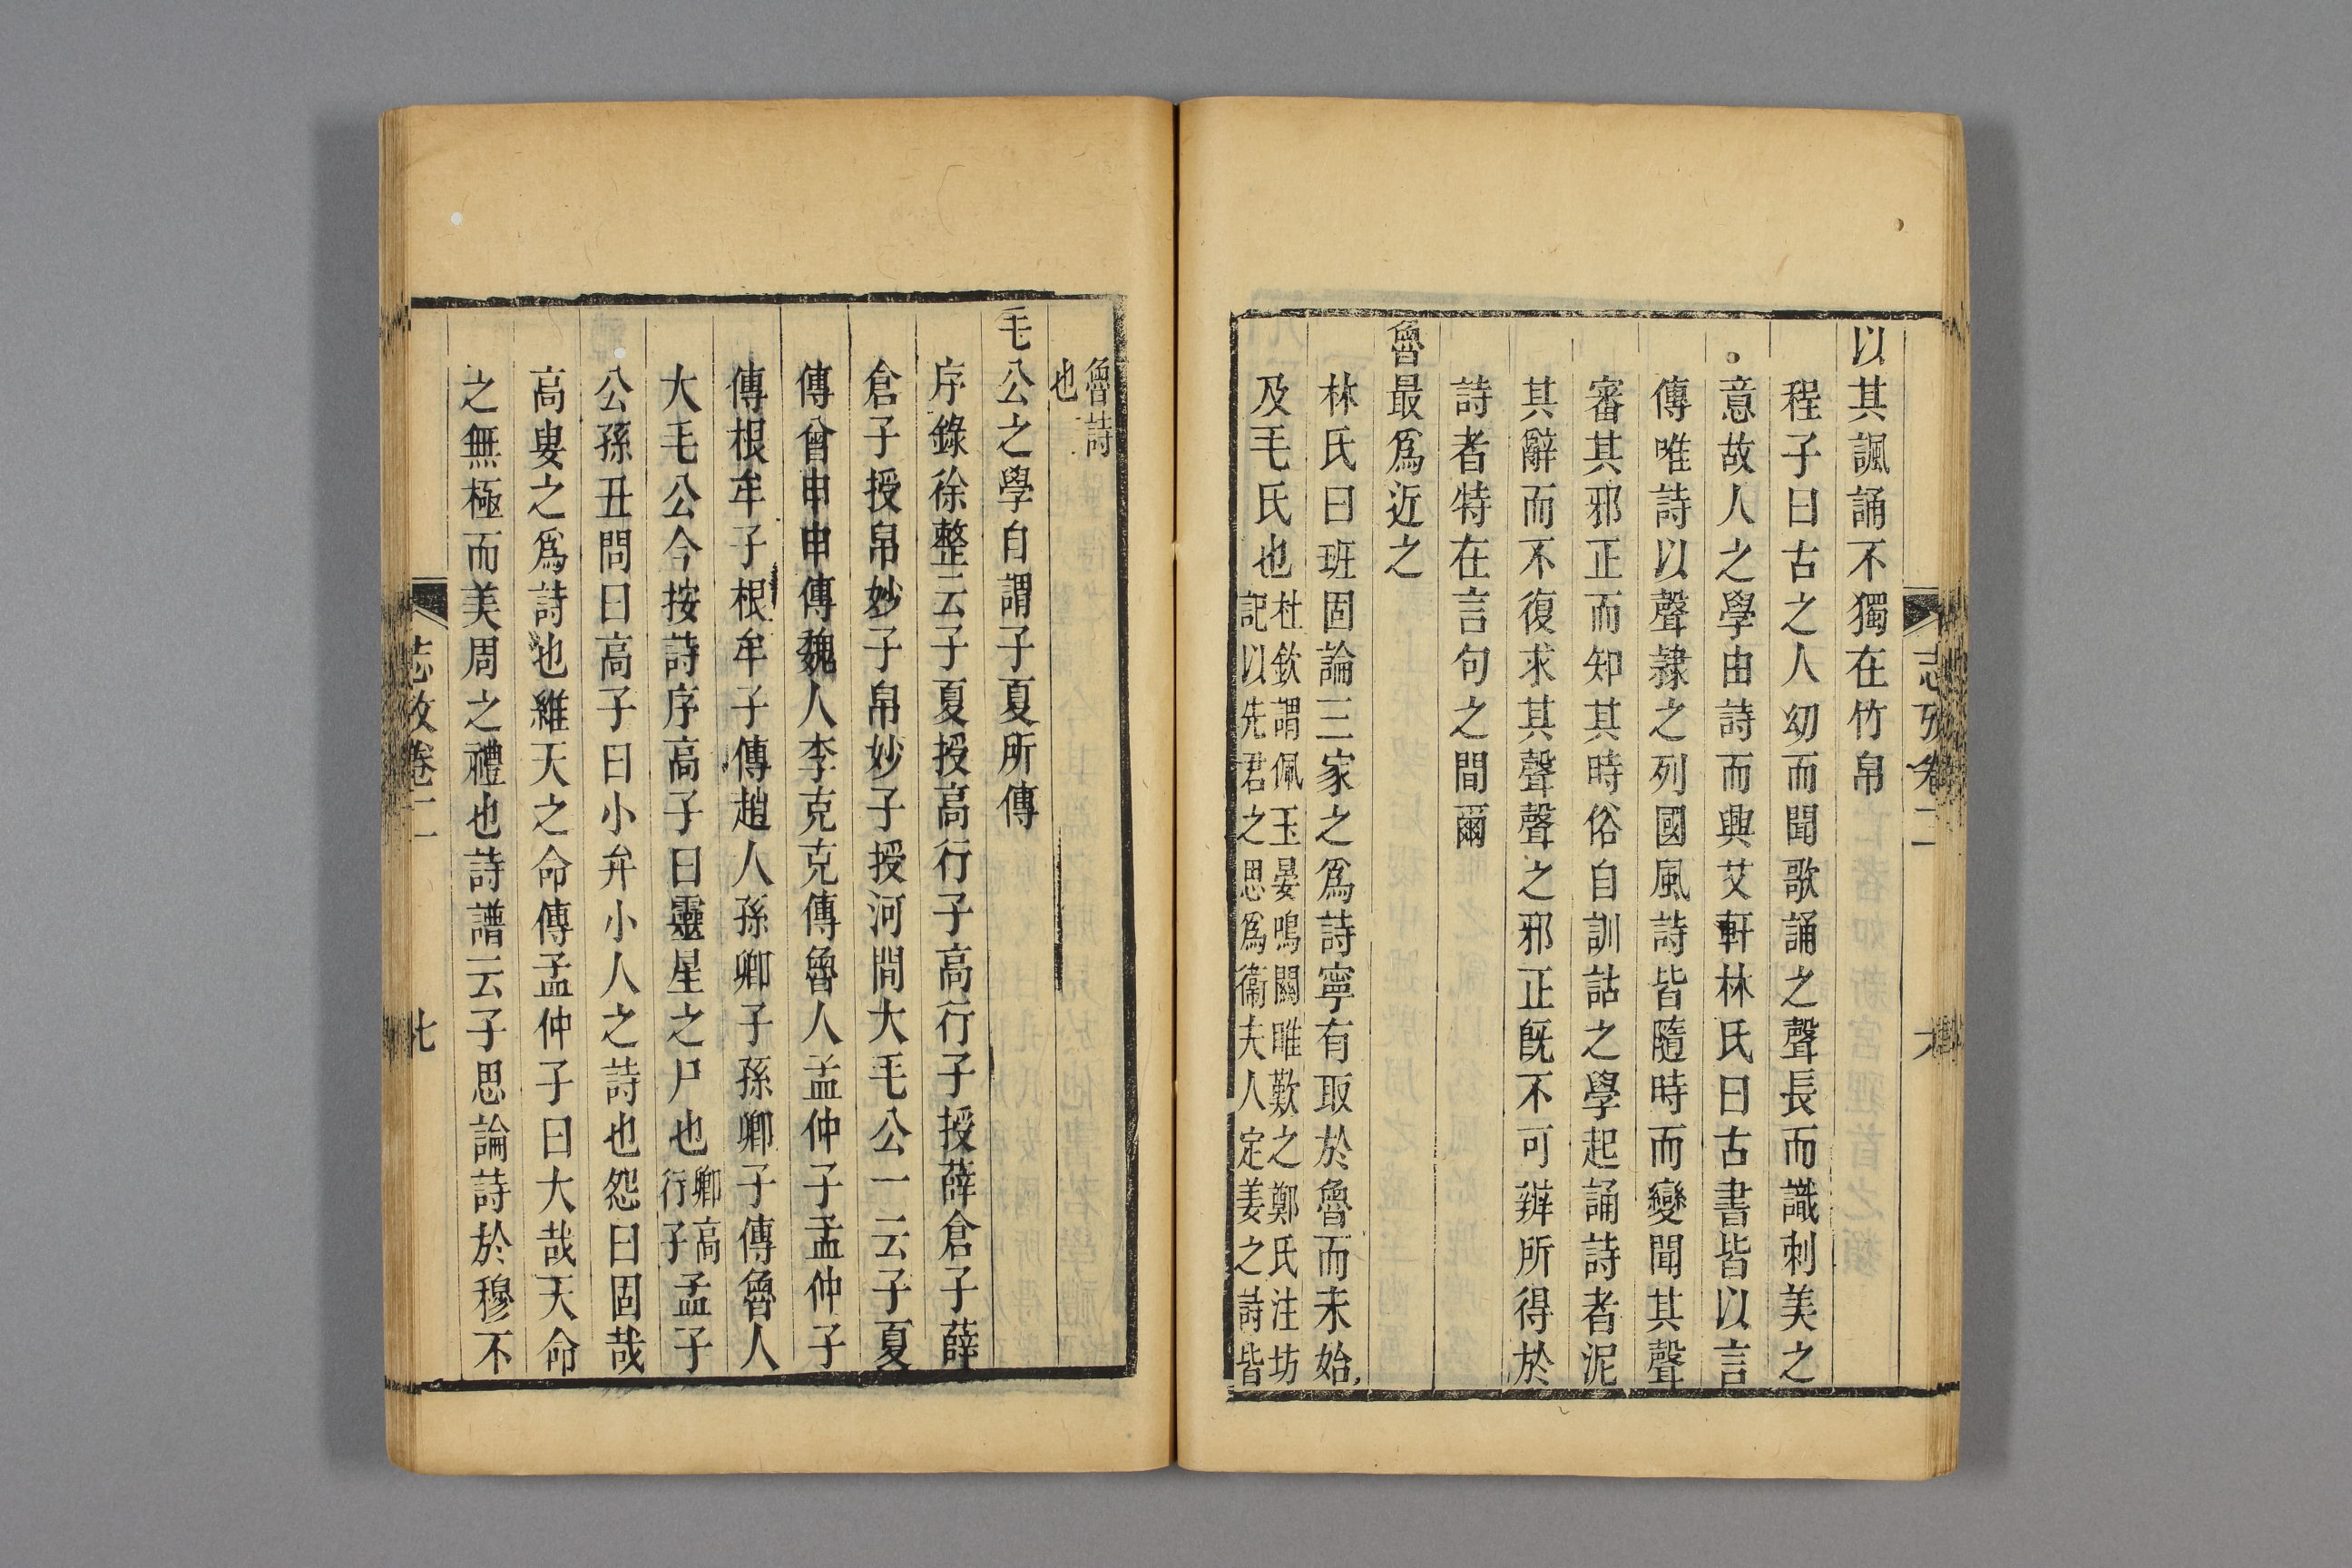 志攷卷二
以其諷誦不獨在竹帛
程子曰古之人幼而聞歌誦之聲長而識刺美之
意故人之學由詩而興艾軒林氏曰古書皆以言
傳唯詩以聲隷之列國風詩皆隨時而變聞其聲
審其邪正而知其時俗自訓詁之學起誦詩者泥
其辭而不復求其聲聲之邪正旣不可辨所得於
詩者特在言句之間爾
魯最爲近之
林氏曰班固論三家之爲詩寧有取於魯而未始
及毛氏也杜欽謂佩玉晏鳴關雎歎之鄭氏注坊
記以先君之思爲衞夫人定姜之詩皆
魯詩
也
毛公之學自謂子夏所傳
序錄徐整云子夏授高行子高行子授薛倉子薛
倉子授帛妙子帛妙子授河間大毛公一云子夏
傳曾申申傳魏人李克克傳魯人孟仲子孟仲子
傳根牟子根牟子傳趙人孫卿子孫卿子傳魯人
大毛公今按詩序高子曰靈星之尸也卽高
行子孟子
公孫丑問曰高子曰小弁小人之詩也怨曰固哉
高叟之爲詩也維天之命傳孟仲子曰大哉天命
之無極而美周之禮也詩譜云子思論詩於穆不
志攷卷二
七